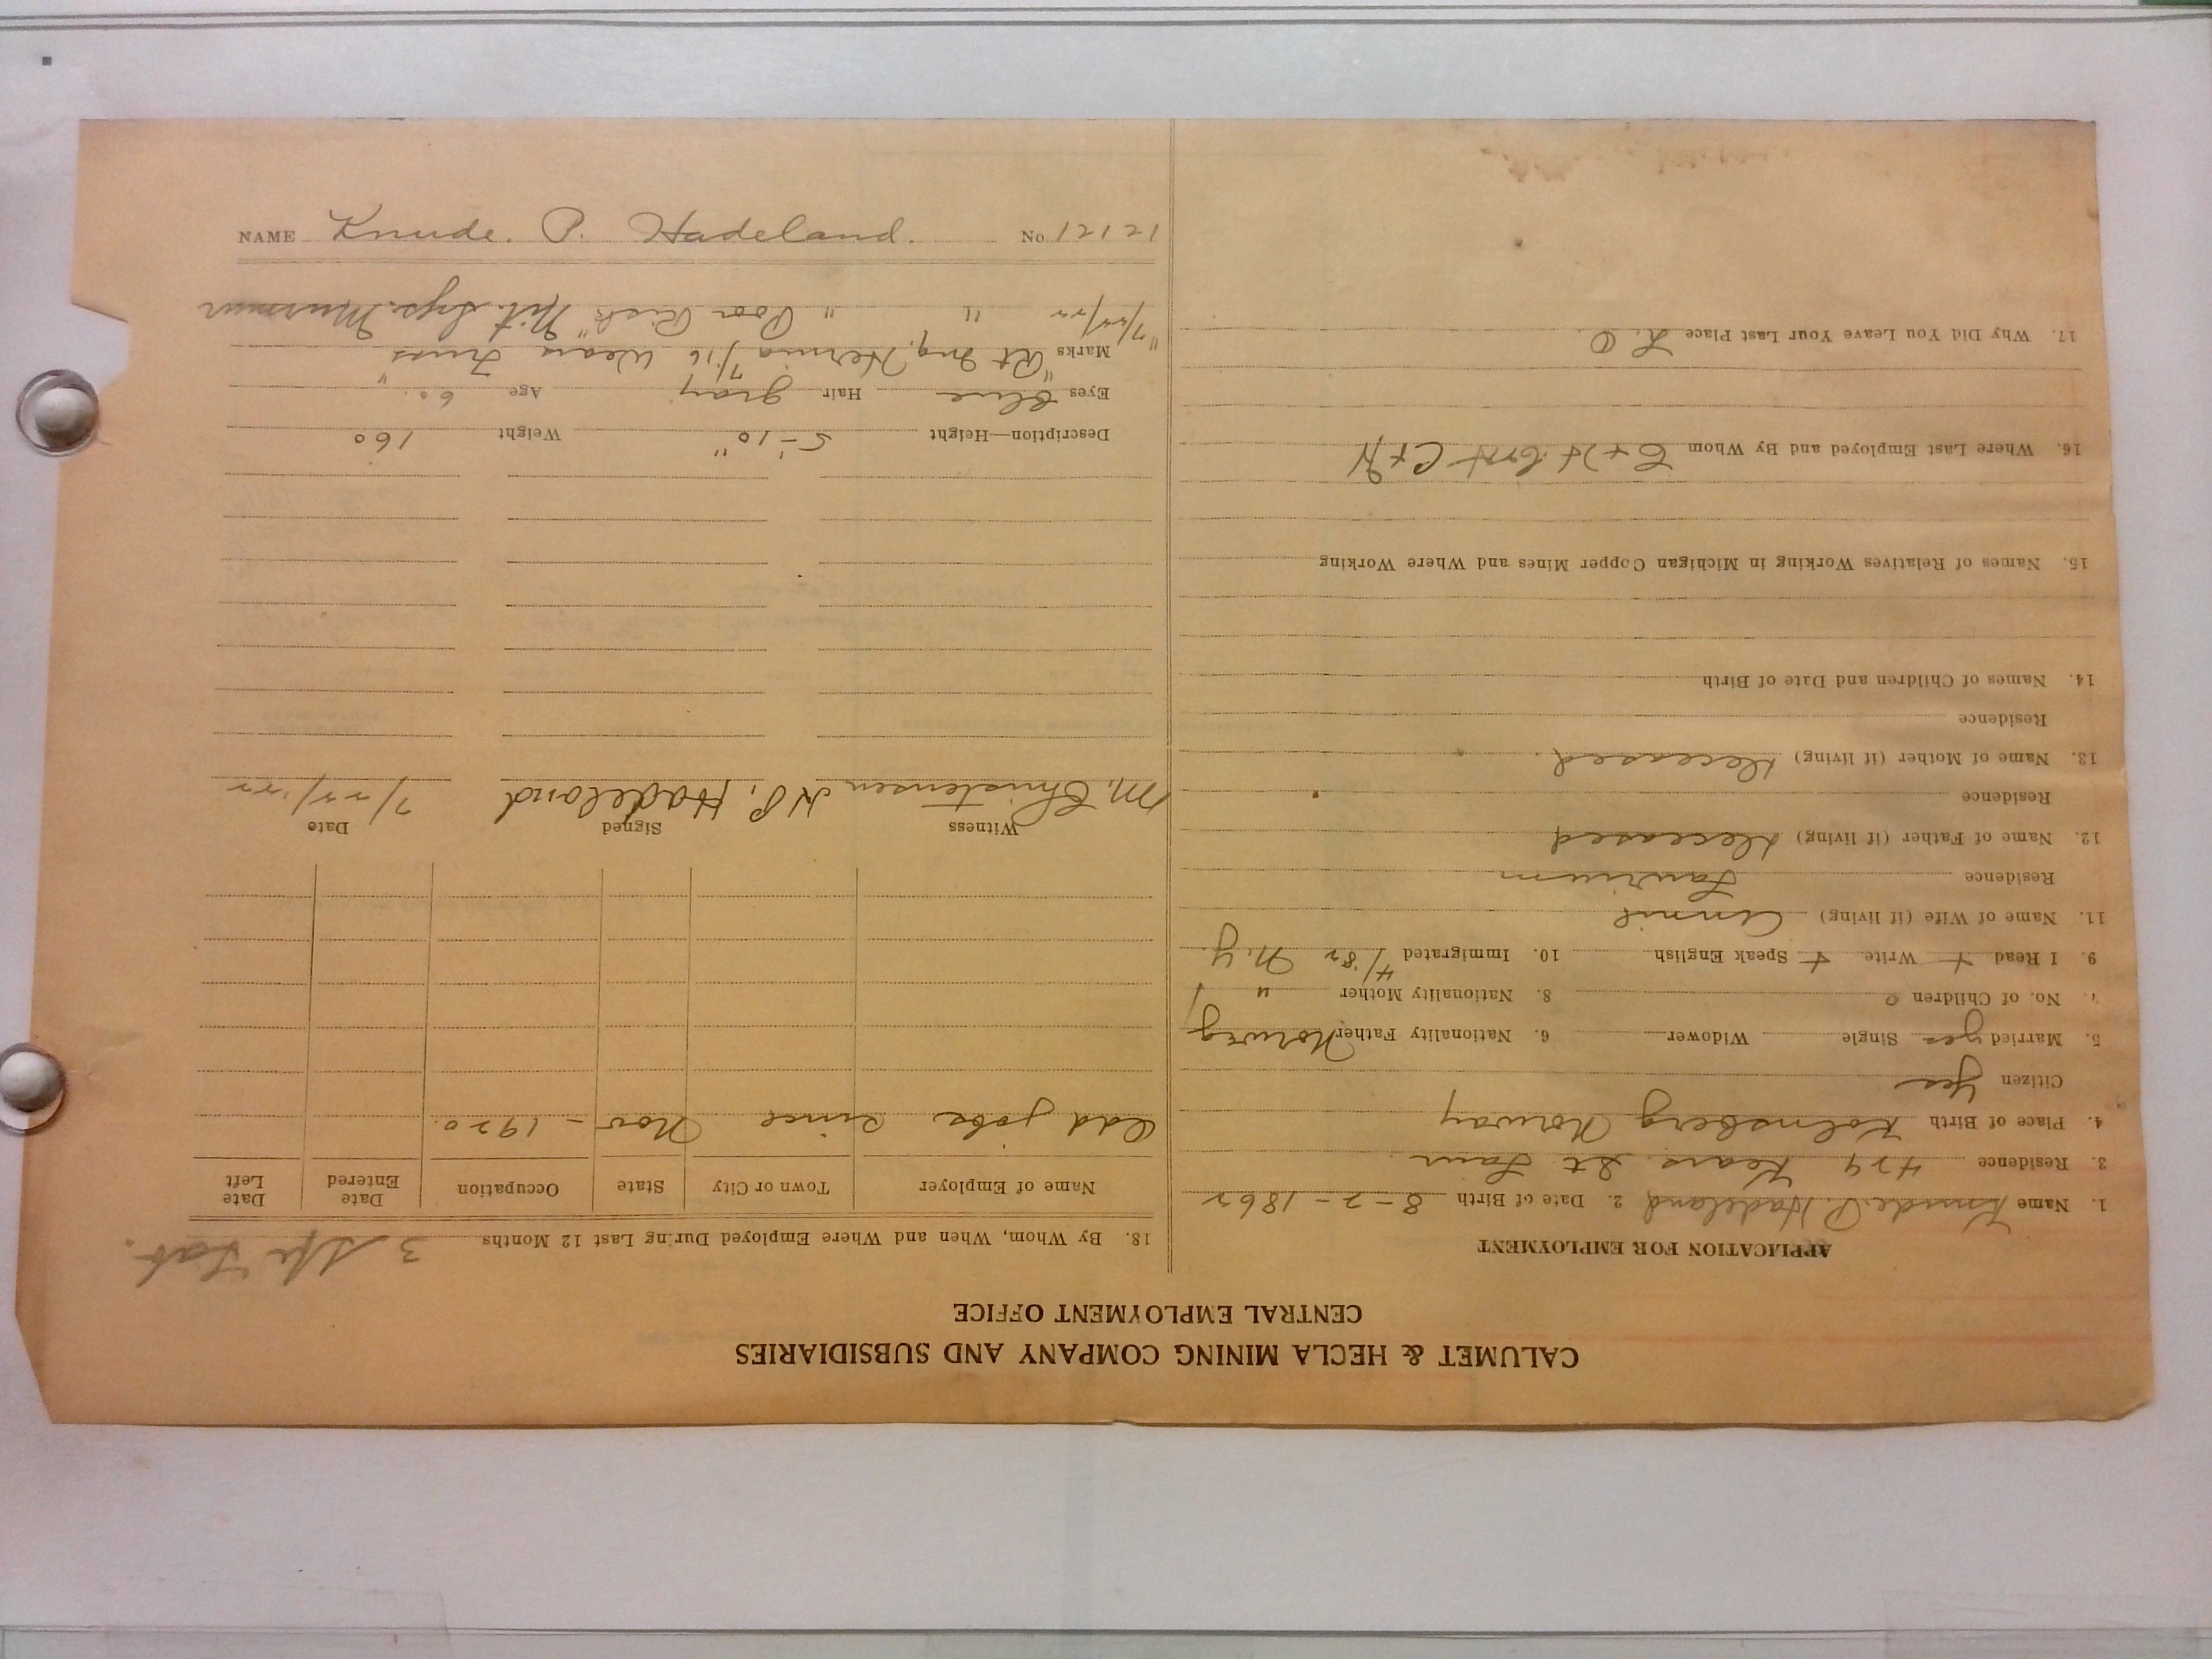 CALUMET & HECLA MINING COMPANY AND SUBSIDIARIES
CENTRAL EMPLOYMENT OFFICE
APPLICATION FOR EMPLOYMENT
1. Name Knude P. Hadeland 2. Date of Birth 8-2-1862
3. Residence 424 Kears. St Laur.
4. Place of Birth Kolnsberg Norway
Citizen Yes
5. Married yes Single Widower 6. Nationality Father Norweg
7. No. of Children 0 8. Nationality Mother "
9. I Read + Write + Speak English 10. Immigrated 4/82 N.Y.
11. Name of Wife (if living) Annie
Residence Laurium
12. Name of Father (if living) Deceased
Residence
13. Name of Mother (if living) Deceased.
Residence
14. Names of Children and Date of Birth
15. Names of Relatives Working in Michigan Copper Mines and Where Working
16. Where Last Employed and By Whom C+H C+H
17. Why Did You Leave Your Last Place L.O.
18. By Whom, When and Where Employed During Last 12 Months 3
Name of Employer Town or City State Occupation Date Entered Date Left
Odd jobs since Nov - 1920.
Witness Signed Date
M. Christensen K P, Hadeland 7/22/22
Description—Height 5'-10" Weight 160
Eyes Blue Hair gray Age 60
Marks "Rt Ing. Hernia 7/16 Wears Truss"
"7/22/22 " " Poor Risk"
NAME Knude. P. Hadeland. No 12121